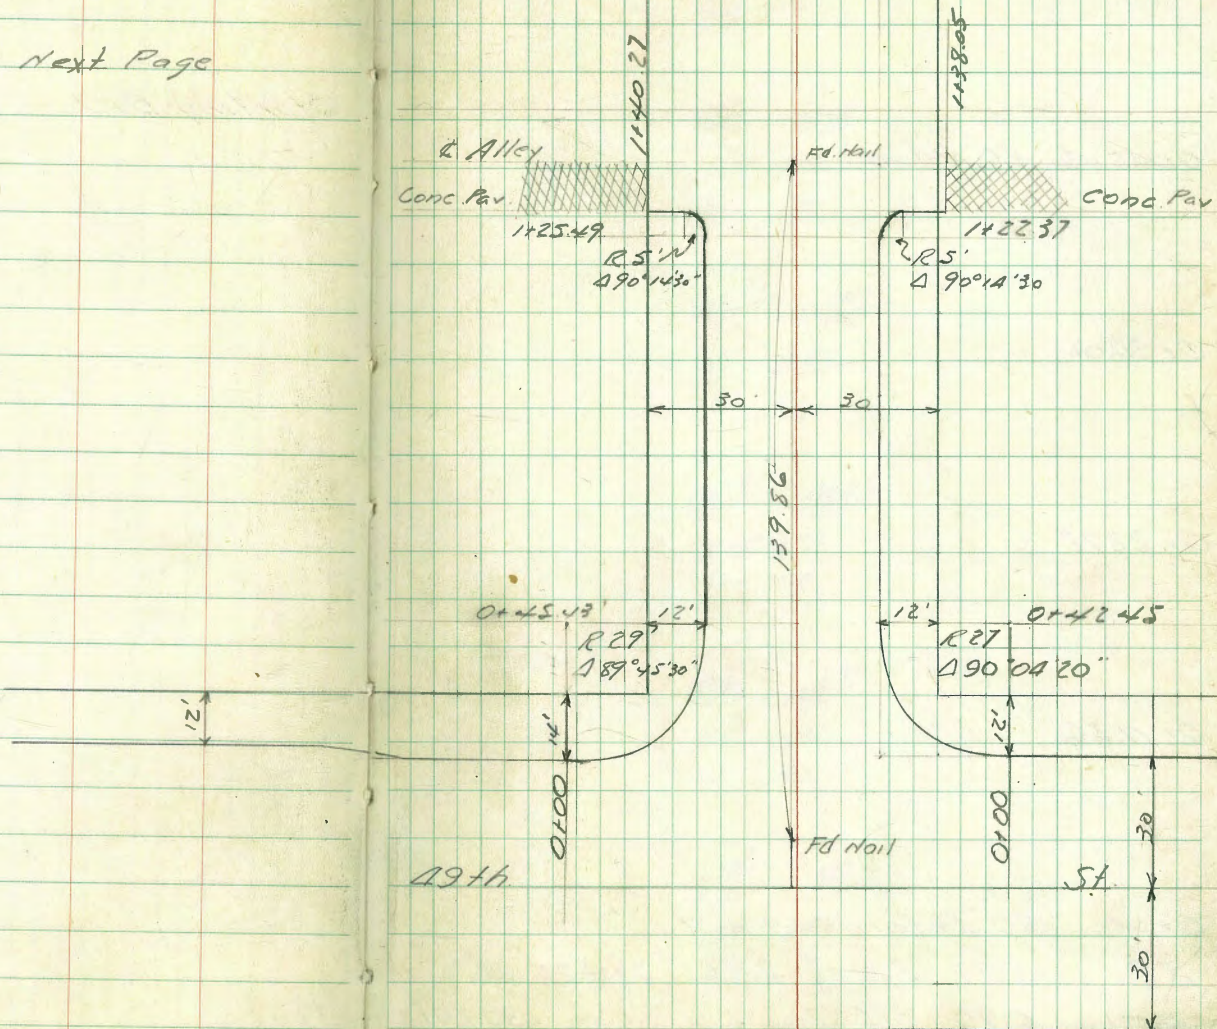 Next Page
1+40.27
1+38.05
℄ Alley
Fd. Nail
Conc. Pav.
Conc. Pav
1+25.49
1+22.37
R 5'
Δ90°14'30"
R 5'
Δ 90°14'30
30
30
139.86
0+45.43'
12'
12'
0+42.45
R 29
Δ89°45'30"
R 27
Δ90°04'20"
12'
14'
12'
0+00
0+00
30'
Fd Nail
49th
St.
30'